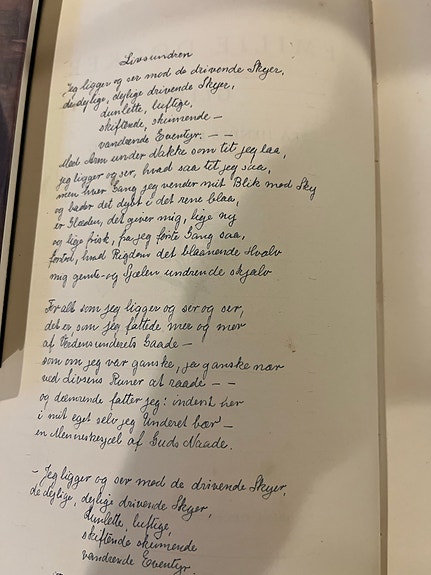 Livsundren
Jeg ligger og ser mod de drivende Skyer,
de dejlige, dejlige drivende Skyer,
dunlette, luftige,
skiftende, skumende –
vandrende Eventyr. – –
Med Arm under Nakke som tit jeg laa,
jeg ligger og ser, hvad saa tit jeg saa,
men hver Gang jeg vender mit Blik mod Sky
og bader det dybt i det rene blaa,
er Glæden, det giver mig, lige ny
og lige frisk, fra jeg første Gang saa,
fortro, hvad Rigdom det blaanende Hvælv
mig gemte – og Sjælen undrende skjalv
For alt som jeg ligger og ser og ser,
det er, som jeg fattede mer og mer
af Verdensunderets Gaade –
som om jeg var ganske, ja ganske nær
ved Livsens Runer at raade – –
og daanende fatter jeg: indent her
i mit eget selv jeg Underet bær –
en Menneskesjæl af Guds Naade.
– Jeg ligger og ser mod de drivende Skyer,
de dejlige, dejlige drivende Skyer,
dunlette, luftige,
skiftende skumende
vandrende Eventyr